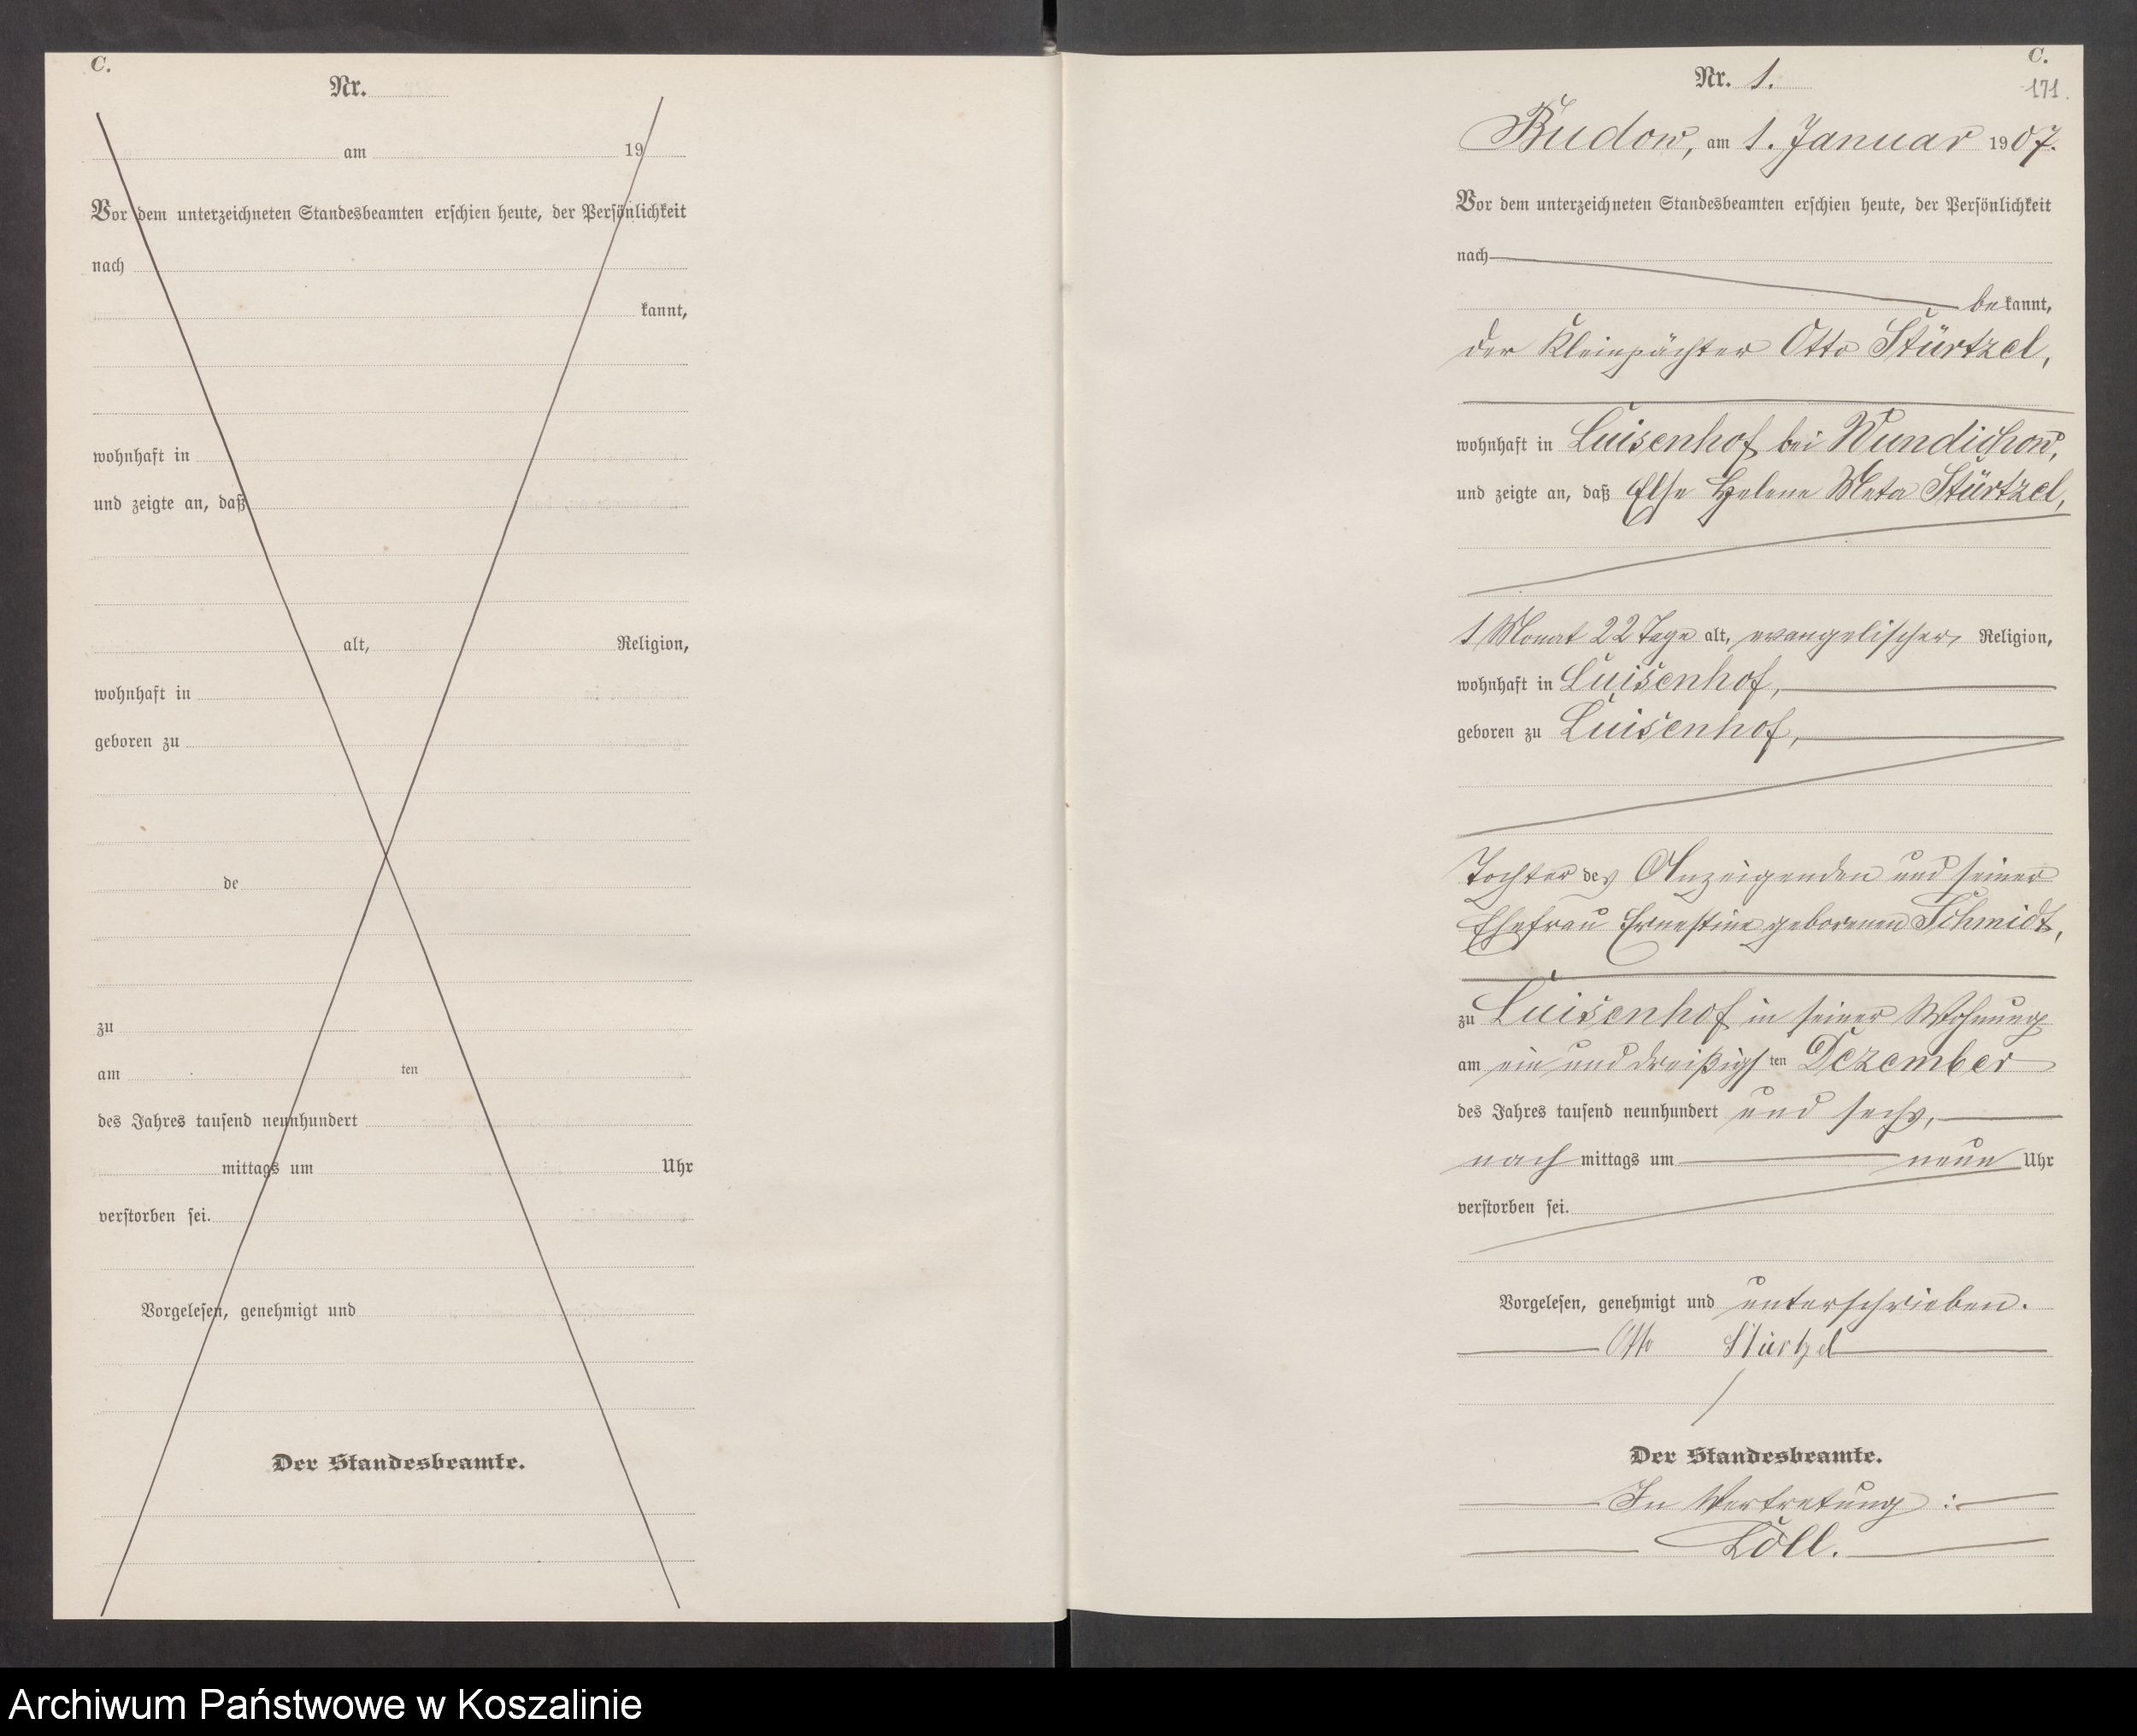 C.
Nr.
am 19
Vor dem unterzeichneten Standesbeamten erschien heute, der Persönlichkeit
nach
kannt,
wohnhaft in
und zeigte an, daß
alt, Religion,
wohnhaft in
geboren zu
de
zu
am ten
des Jahres tausend neunhundert
mittags um Uhr
verstorben sei.
Vorgelesen, genehmigt und
Der Standesbeamte.
C.
Nr. 1.
171.
Budow, am 1. Januar 1907.
Vor dem unterzeichneten Standesbeamten erschien heute, der Persönlichkeit
nach
bekannt,
der Kleinpächter Otto Stürtzel,
wohnhaft in Luisenhof bei Wundichow,
und zeigte an, daß Else Helene Meta Stürtzel,
1 Monat 22 Tage alt, evangelischer Religion,
wohnhaft in Luisenhof,
geboren zu Luisenhof,
Tochter des Anzeigenden und seiner
Ehefrau Ernestine geborenen Schmidt,
zu Luisenhof in seiner Wohnung
am ein und dreißigsten Dezember
des Jahres tausend neunhundert und sechs,
nach mittags um neun Uhr
verstorben sei.
Vorgelesen, genehmigt und unterschrieben.
Otto Stürtzel
Der Standesbeamte.
In Vertretung:
Löll.
Archiwum Państwowe w Koszalinie